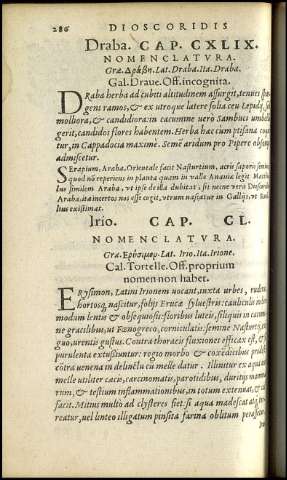 286 DIOSCORIDIS
Draba. CAP. CXLIX.
NOMENCLATVRA.
Græ. Δράβη. Lat. Draba. Ita. Draba.
Gal. Draue. Off. incognita.
DRaba herba ad cubiti altitudinem assurgit, tenuis
gens ramos, & ex utroque latere folia ceu Lepidij, sed
molliora, & candidiora: in cacumine uerò Sambuci umbellã
gerit, candidos flores habentem. Herba hæc cum ptisana coqui
tur, in Cappadocia maximè. Semē aridum pro Pipere obsonijs
admiscetur.
SErapium, Araba. Orientale facit Nasturtium, acris saporis
quod nō reperiens in planta quam in valle Ananiæ legit
lus similem Araba, vt ipse de illa dubitat: sic neuè verè Dioscoridis
Araba sit incertos nos esse cogit, vtrum nascatur in Gallijs,
lius existimat.
Irio. CAP. CL.
NOMENCLATVRA.
Græ. Ερύσιμον. Lat. Irio. Ita. Irione.
Cal. Tortelle. Off. proprium
nomen non habet.
ERysimon, Latini Irionem uocant, iuxta urbes,
hortosq; nascitur, folijs Erucæ syluestris: cauliculis
modum lentis & obsequiosis: floribus luteis, siliquis in cacumi
ne gracilibus, ut Fœnogreco, corniculatis: semine Nasturtij,
guo, urentis gustus. Contra thoracis fluxiones efficax est, &
purulenta extussiuntur: regio morbo & coxēdicibus prodest
cōtra uenena in delinctu cū melle datur. Illinitur ex aqua
melle utiliter cacis, carcinomatis, parotidibus, duritijs
tium, & testium inflammationibus, in totum extenuat, &
facit. Mitius multò ad clysteres fiet: si aqua madescat
reatur, uel linteo illigatum pinsita farina oblitum